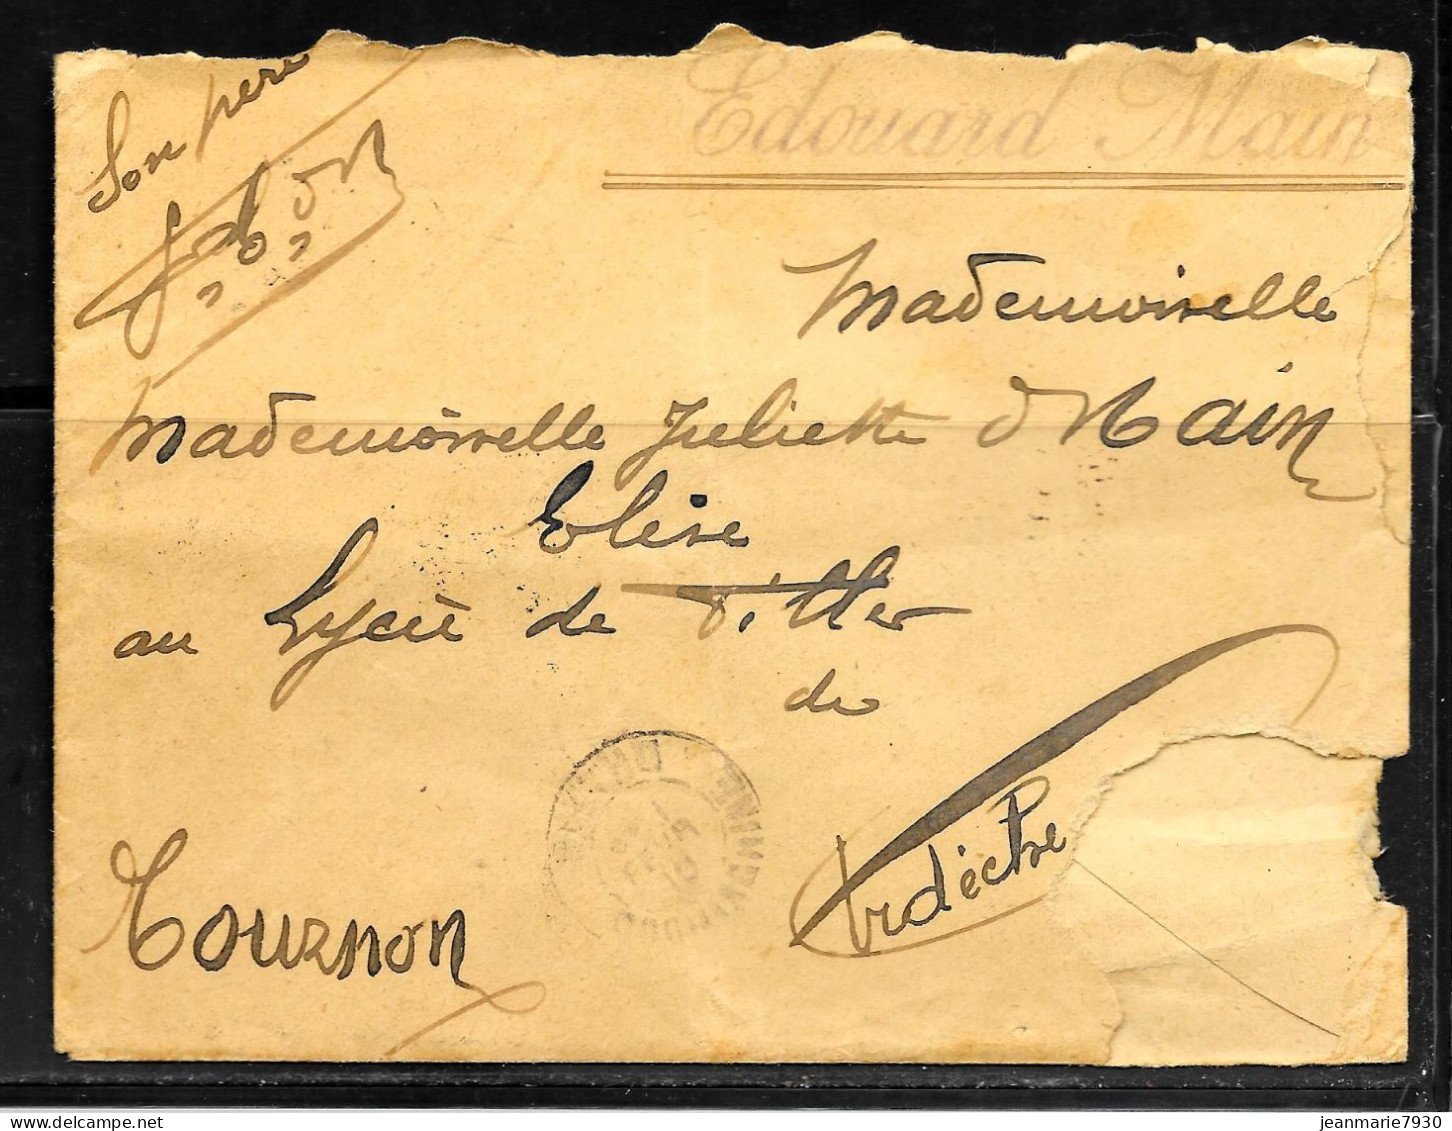 Son père
Edouard Main
Mademoiselle
Mademoiselle Juliette Main
Elève
au Lycée de filles
de
Tournon
Ardèche
jeanmarie7930